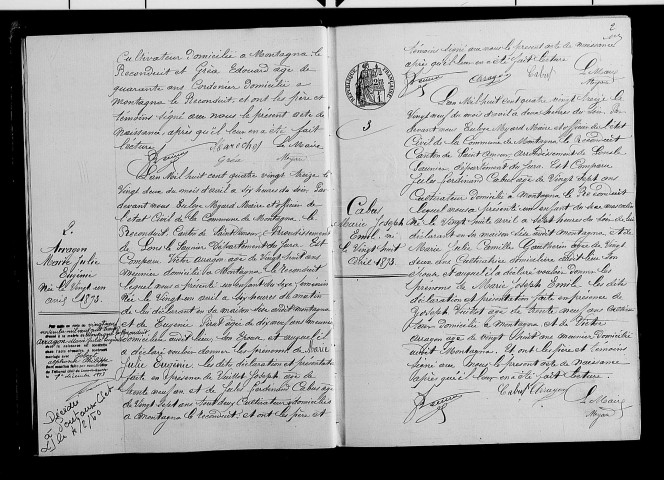 Cultivateur Domicilié à Montagna le
Reconduit et Gréa Edouard âgé de
quarante ans Cordonier Domicilié à
Montagna le Reconduit, et ont les père et
témoins signé avec nous le présent acte de
Naissance, après qu'il leur en a été fait
lecture
Gréa
Le Maire
Myard
2.
Arragon
Marie Julie
Eugénie
Née le Vingt un
avril 1893.
L'an Mil huit cent quatre vingt treize le
Vingt deux du mois d'avril à six heures du soir Par
devant nous Euloge Myard Maire et officier de
l'état Civil de la Commune de Montagna le
Reconduit Canton de Saint Amour, arrondissement
de Lons le Saunier Département du Jura. Est
Comparu Victor arragon âgé de Vingt huit ans
Meunier domicilié à Montagna le reconduit
lequel nous a présenté un enfant du sexe féminin
Née le Vingt un avril à six heures du matin
de lui déclarant en sa maison sise audit montagna
et de Eugénie Pirat âgé de dix neuf ans meunière
domiciliée audit lieu son Epouse et auquel il
a déclaré vouloir donner les prénoms de Marie
Julie Eugénie, les dites déclaration et présentation
faite en présence de Voidet Joseph âgé de
trente neuf ans et de Jules Ferdinand Cabus âgé
de Vingt sept ans tous deux Cultivateurs domiciliés
à montagna le reconduit et ont les père et
Décédée
à
le 4/2/80
2
témoins signé avec nous le présent acte de naissance
après qu'il leur en a été fait lecture
Arragon
Cabus
Le Maire
Myard
3
Cabus
Marie Joseph
Emile né
le Vingt huit
Avril 1893.
L'an Mil huit cent quatre vingt treize le
Vingt neuf du mois d'avril à deux heures du soir. Par
devant nous Euloge Myard Maire et officier de l'état
Civil de la Commune de Montagna le Reconduit
Canton de Saint Amour arrondissement de Lons le
Saunier département du Jura. Est Comparu
Jules Ferdinand Cabus âgé de Vingt sept ans
Cultivateur Domicilié à montagna le Reconduit
lequel nous a présenté un enfant du sexe masculin
né le Vingt huit avril à sept heures du soir de lui
déclarant en sa maison sise audit montagna, et de
Marie Julie Camille Gauthier âgé de Vingt
deux ans Cultivatrice domiciliée audit lieu son
Epouse et auquel il a déclaré vouloir donner les
prénoms de Marie Joseph Emile les dites
déclaration et présentation faite en présence de
Joseph Voidet âgé de trente neuf ans Cultivateur
Domicilié à montagna et de Victor
arragon âgé de Vingt huit ans meunier Domicilié
audit Montagna. Et ont les père et témoins
signé avec nous le présent acte de naissance
après qu'il leur en a été fait lecture
Cabus
Arragon
Le Maire
Myard